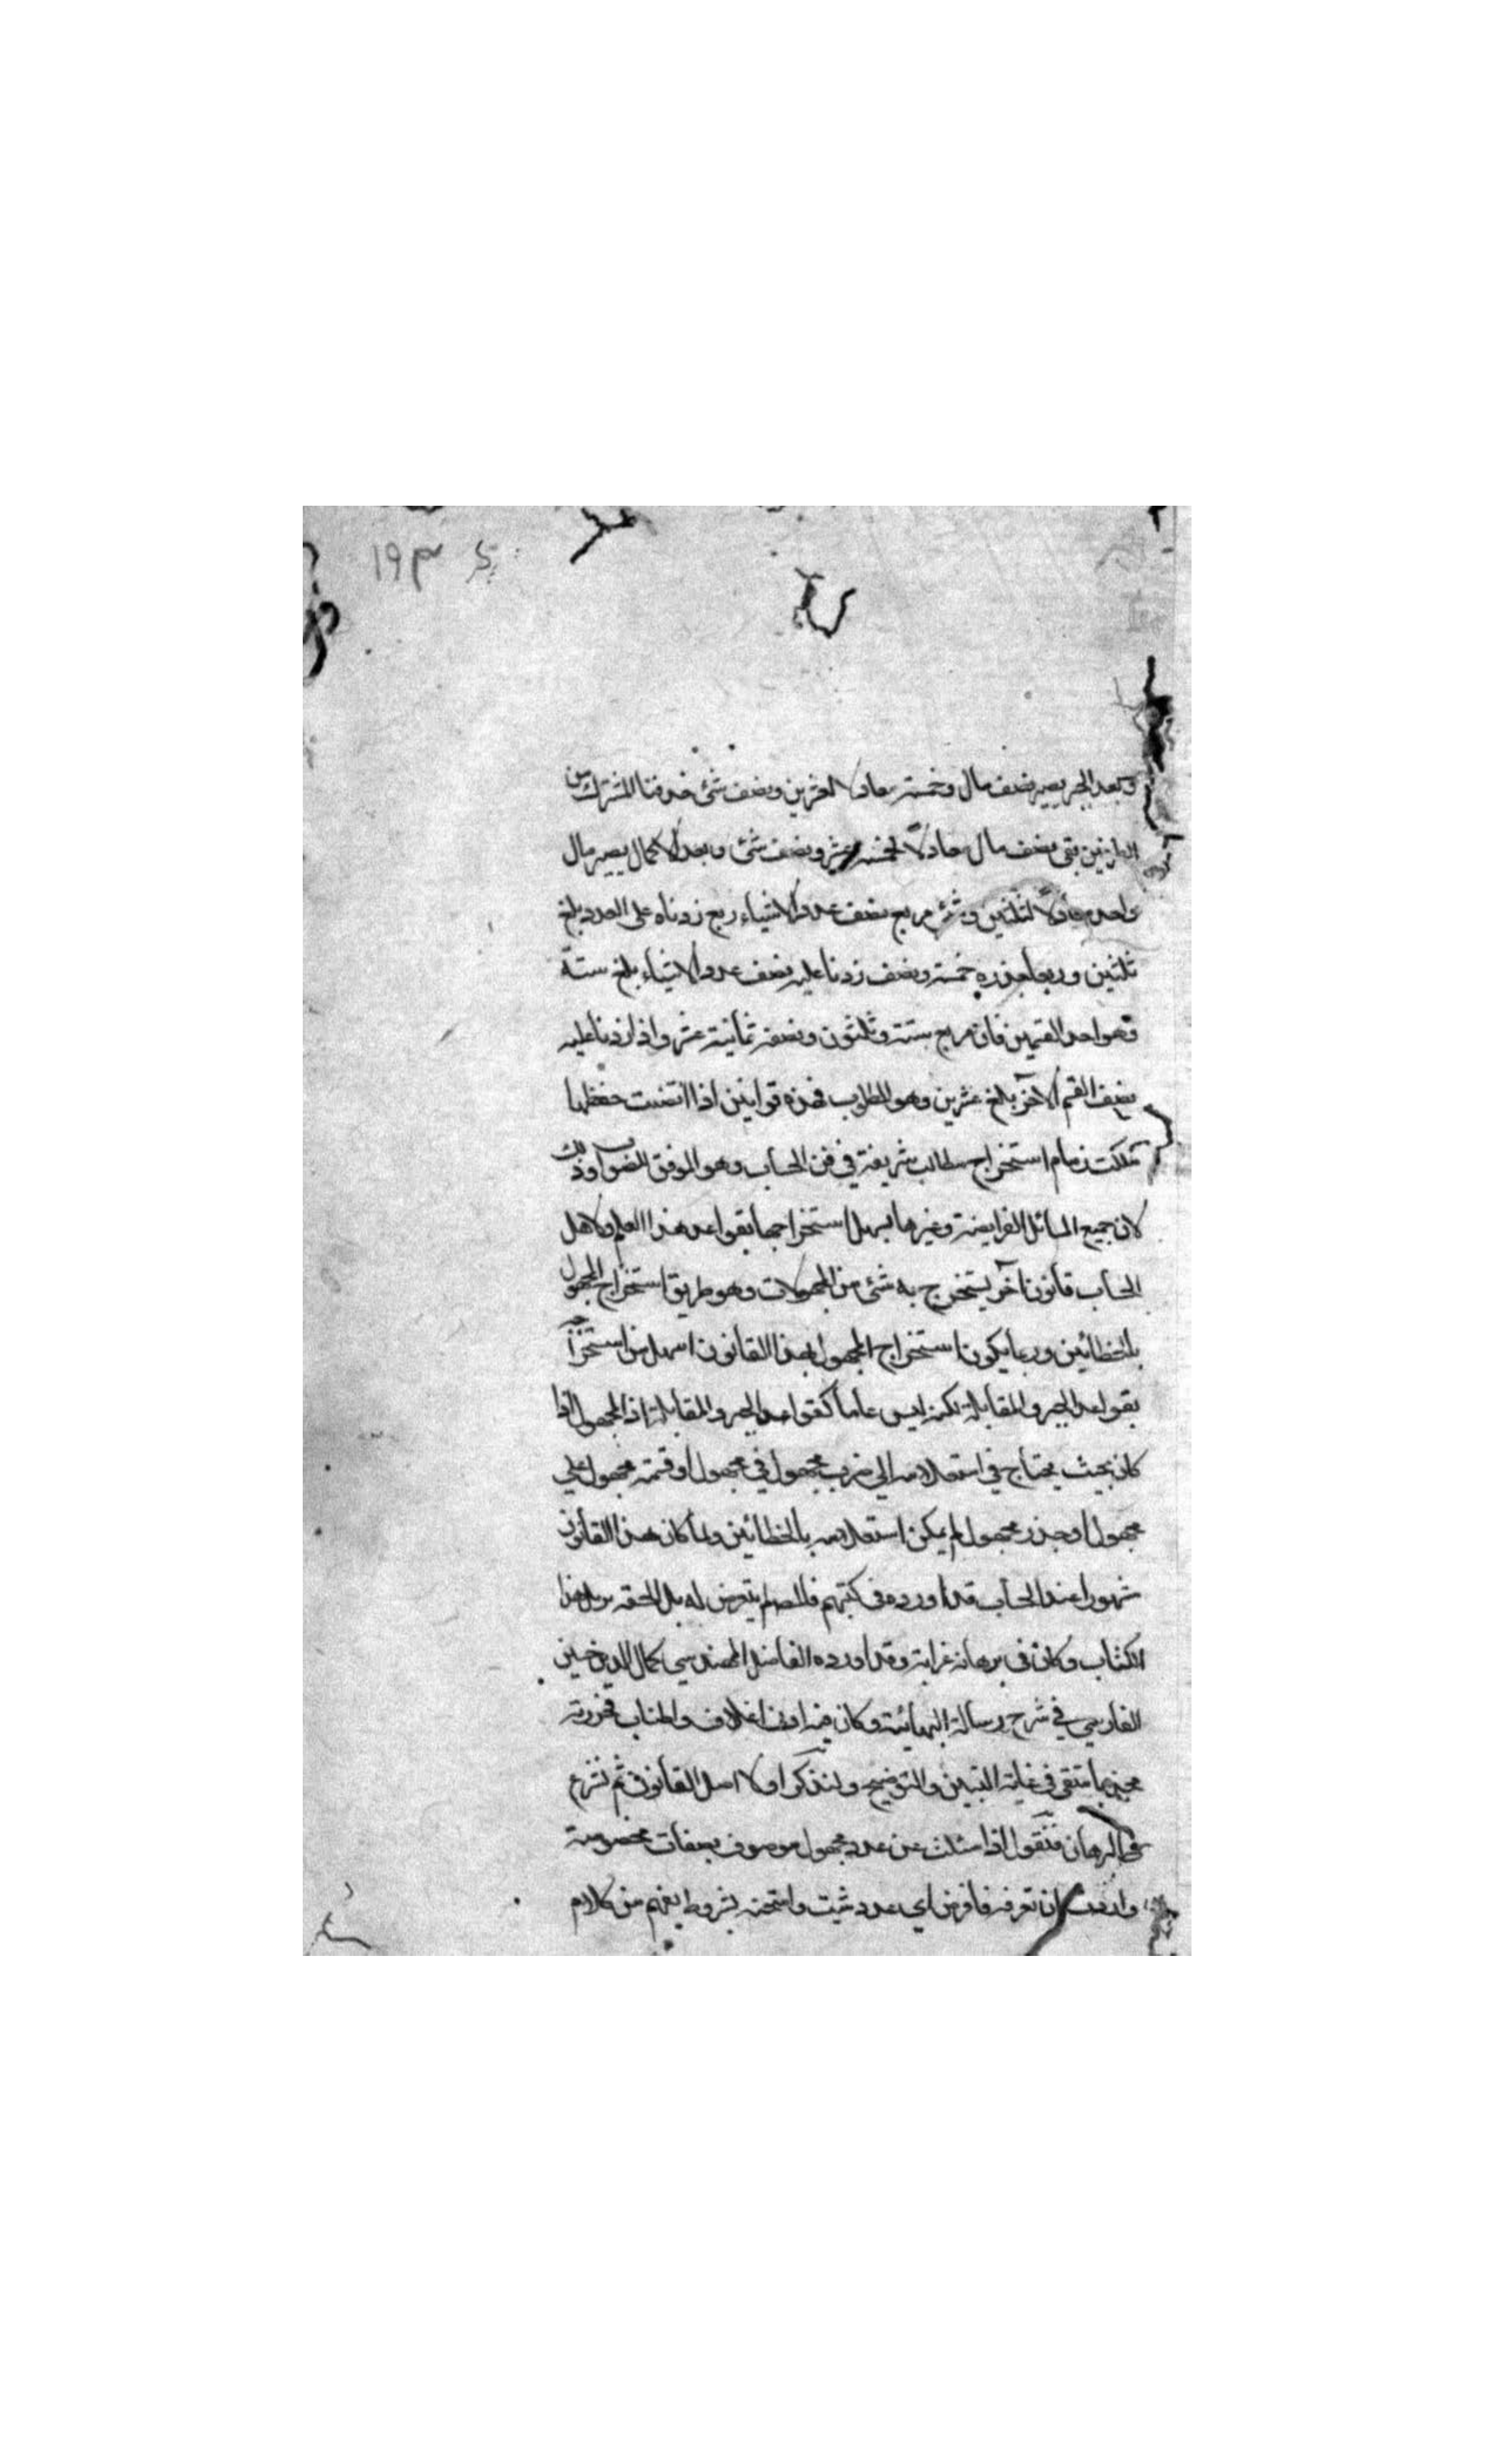 ١٩٣
وبعد الجبر يصير نصف مال وخمسة معادلا لعشرين ونصف شئ حذفنا المشترك من
الطرفين بقى نصف مال معادلاً لخمسة عشر ونصف شئ وبعد الاكمال يصير مال
واحد معادلاً لثلثين وشئ مربع نصف عدد الاشياء ربع زدناه على العدد بلغ
ثلثين وربعا جذره خمسة ونصف زدنا عليه نصف عدد الاشياء بلغ ستة
وهو احد القسمين فان مربع ستة وثلثون ونصفه ثمانية عشر واذا زدنا عليه
نصف القسم الآخر بلغ عشرين وهو المطلوب فهذه قوانين اذا اتقنت حفظها
ملكت زمام استخراج مطالب شريفة في فن الحساب وهو الموفق للصواب وذلك
لان جميع المسائل الفرايضة وغيرها يسهل استخراجها بقواعد هذا العلم ولاهل
الحساب قانون آخر يستخرج به شئ من المجهولات وهو طريق استخراج المجهول
بالخطائين وربما يكون استخراج المجهول بهذا القانون اسهل من استخراجه
بقواعد الجبر والمقابلة لكنه ليس عاما كقواعد الجبر والمقابلة اذ المجهول اذا
كان بحيث يحتاج في استعلامه الي ضرب مجهول في مجهول او قسمة مجهول علي
مجهول او جذر مجهول لم يمكن استعلامه بالخطائين ولما كان هذا القانون
شهورا عند الحساب قد اوردوه في كتبهم فالمصه لم يتعرض له بل الحقه بهذا
الكتاب وكان في برهانه غرابة وقد اورده الفاضل المهندسي كمال الدين حسين
الفارسي في شرح رسالة البهائية وكان فيه اغلاق واطناب فحررته
في غاية التبيين والتوضيح ولنذكر اولا اصل القانون ثم نشرع
في البرهان فنقول اذا سئلت عن عدد مجهول موصوف بصفات مخصوصة
واردت ان تعرفه فافرض اي عدد شئت وامتحنه بشروط يفهم من كلام